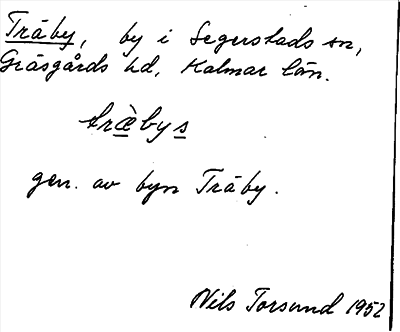 Träby, by i Segerstads sn,
Gräsgårds hd, Kalmar län.
træ̀bys
gen. av byn Träby.
Nils Torsund 1952